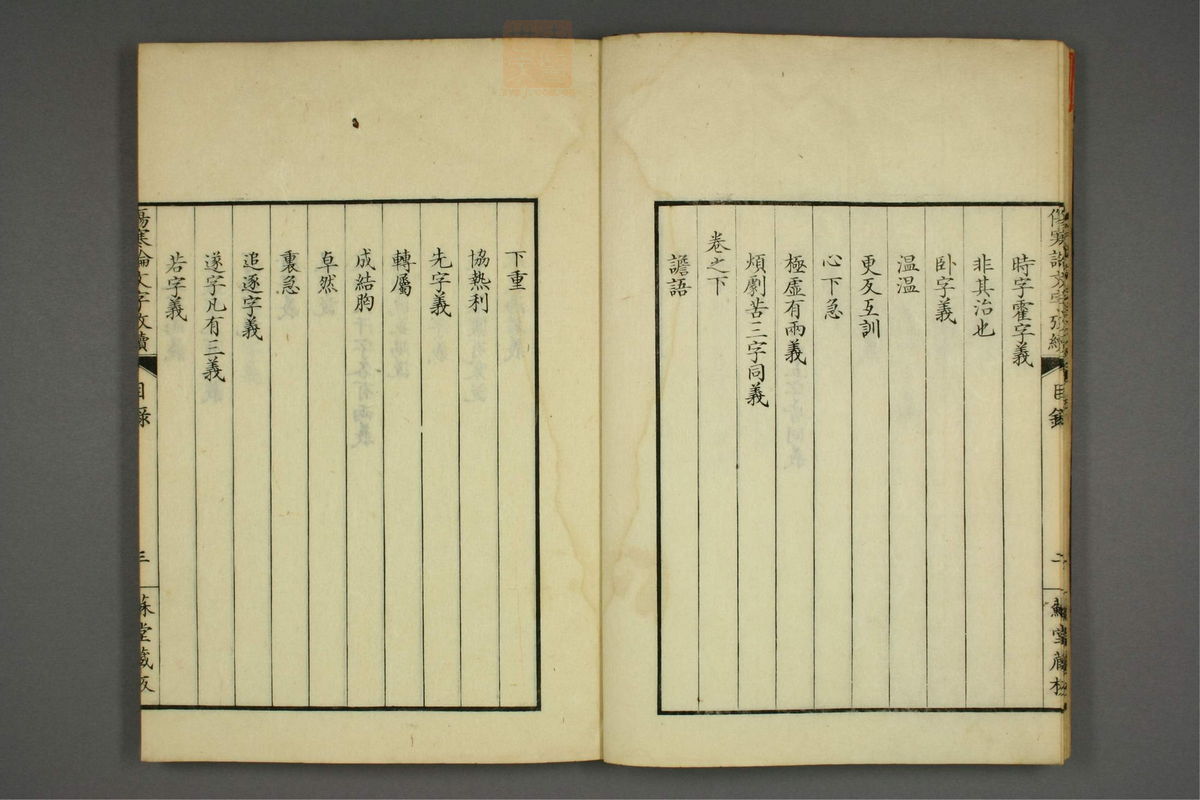 時字霍字義
非其治也
卧字義
温温
更反互訓
心下急
極虛有兩義
煩劇苦三字同義
卷之下
譫語
下重
協熱利
先字義
轉屬
成結胸
卓然
裏急
追逐字義
遂字凡有三義
若字義
傷寒論文字攷續
目錄
三
蘇堂藏板